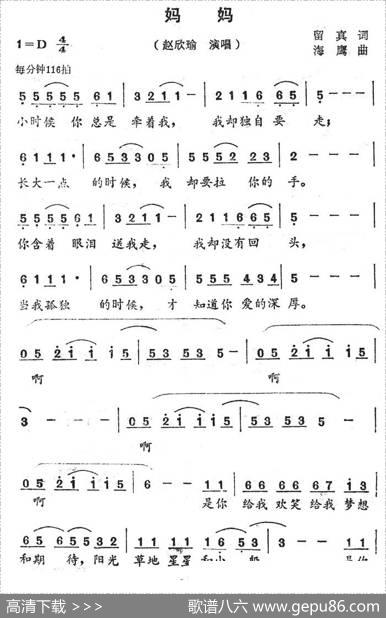 妈 妈
1=D 4/4
（赵欣瑜 演唱）
留 真 词
海 鹰 曲
每分钟116拍
5 5 5 5 5 6 1 | 3 2 1 1 - | 2 1 1 6 6 5 | 5 - - - |
小时候 你 总是 牵着我， 我却独自要 走；
6 1 1 1 · | 6 5 3 3 0 5 | 5 5 5 2 2 3 | 2 - - - |
长大一点 的时候， 我 却要拉 你的 手。
5 5 5 5 5 6 1 | 3 2 1 1 - | 2 1 1 6 6 5 | 5 - - - |
你含着 眼泪 送我走， 我却没有回 头，
6 1 1 1 · | 6 5 3 3 0 5 | 5 5 5 4 3 4 | 5 - - - |
当我孤独 的时候， 才 知道你 爱的深 厚。
0 5 2 1 1 1 5 | 5 3 5 3 5 - | 0 5 2 1 1 1 5 |
啊 啊
3 - - - | 0 5 2 1 1 1 5 | 5 3 5 3 5 - |
啊
0 5 2 1 1 1 5 | 6 - - 1 1 | 6 6 6 6 6 7 1 3 |
啊 是你 给我 欢笑 给我 梦想
6 5 6 5 5 3 2 | 1 1 1 1
和期 待，阳光 草地 星星 和小
是你
高清下载 >>>
歌谱八六 www.gepu86.com